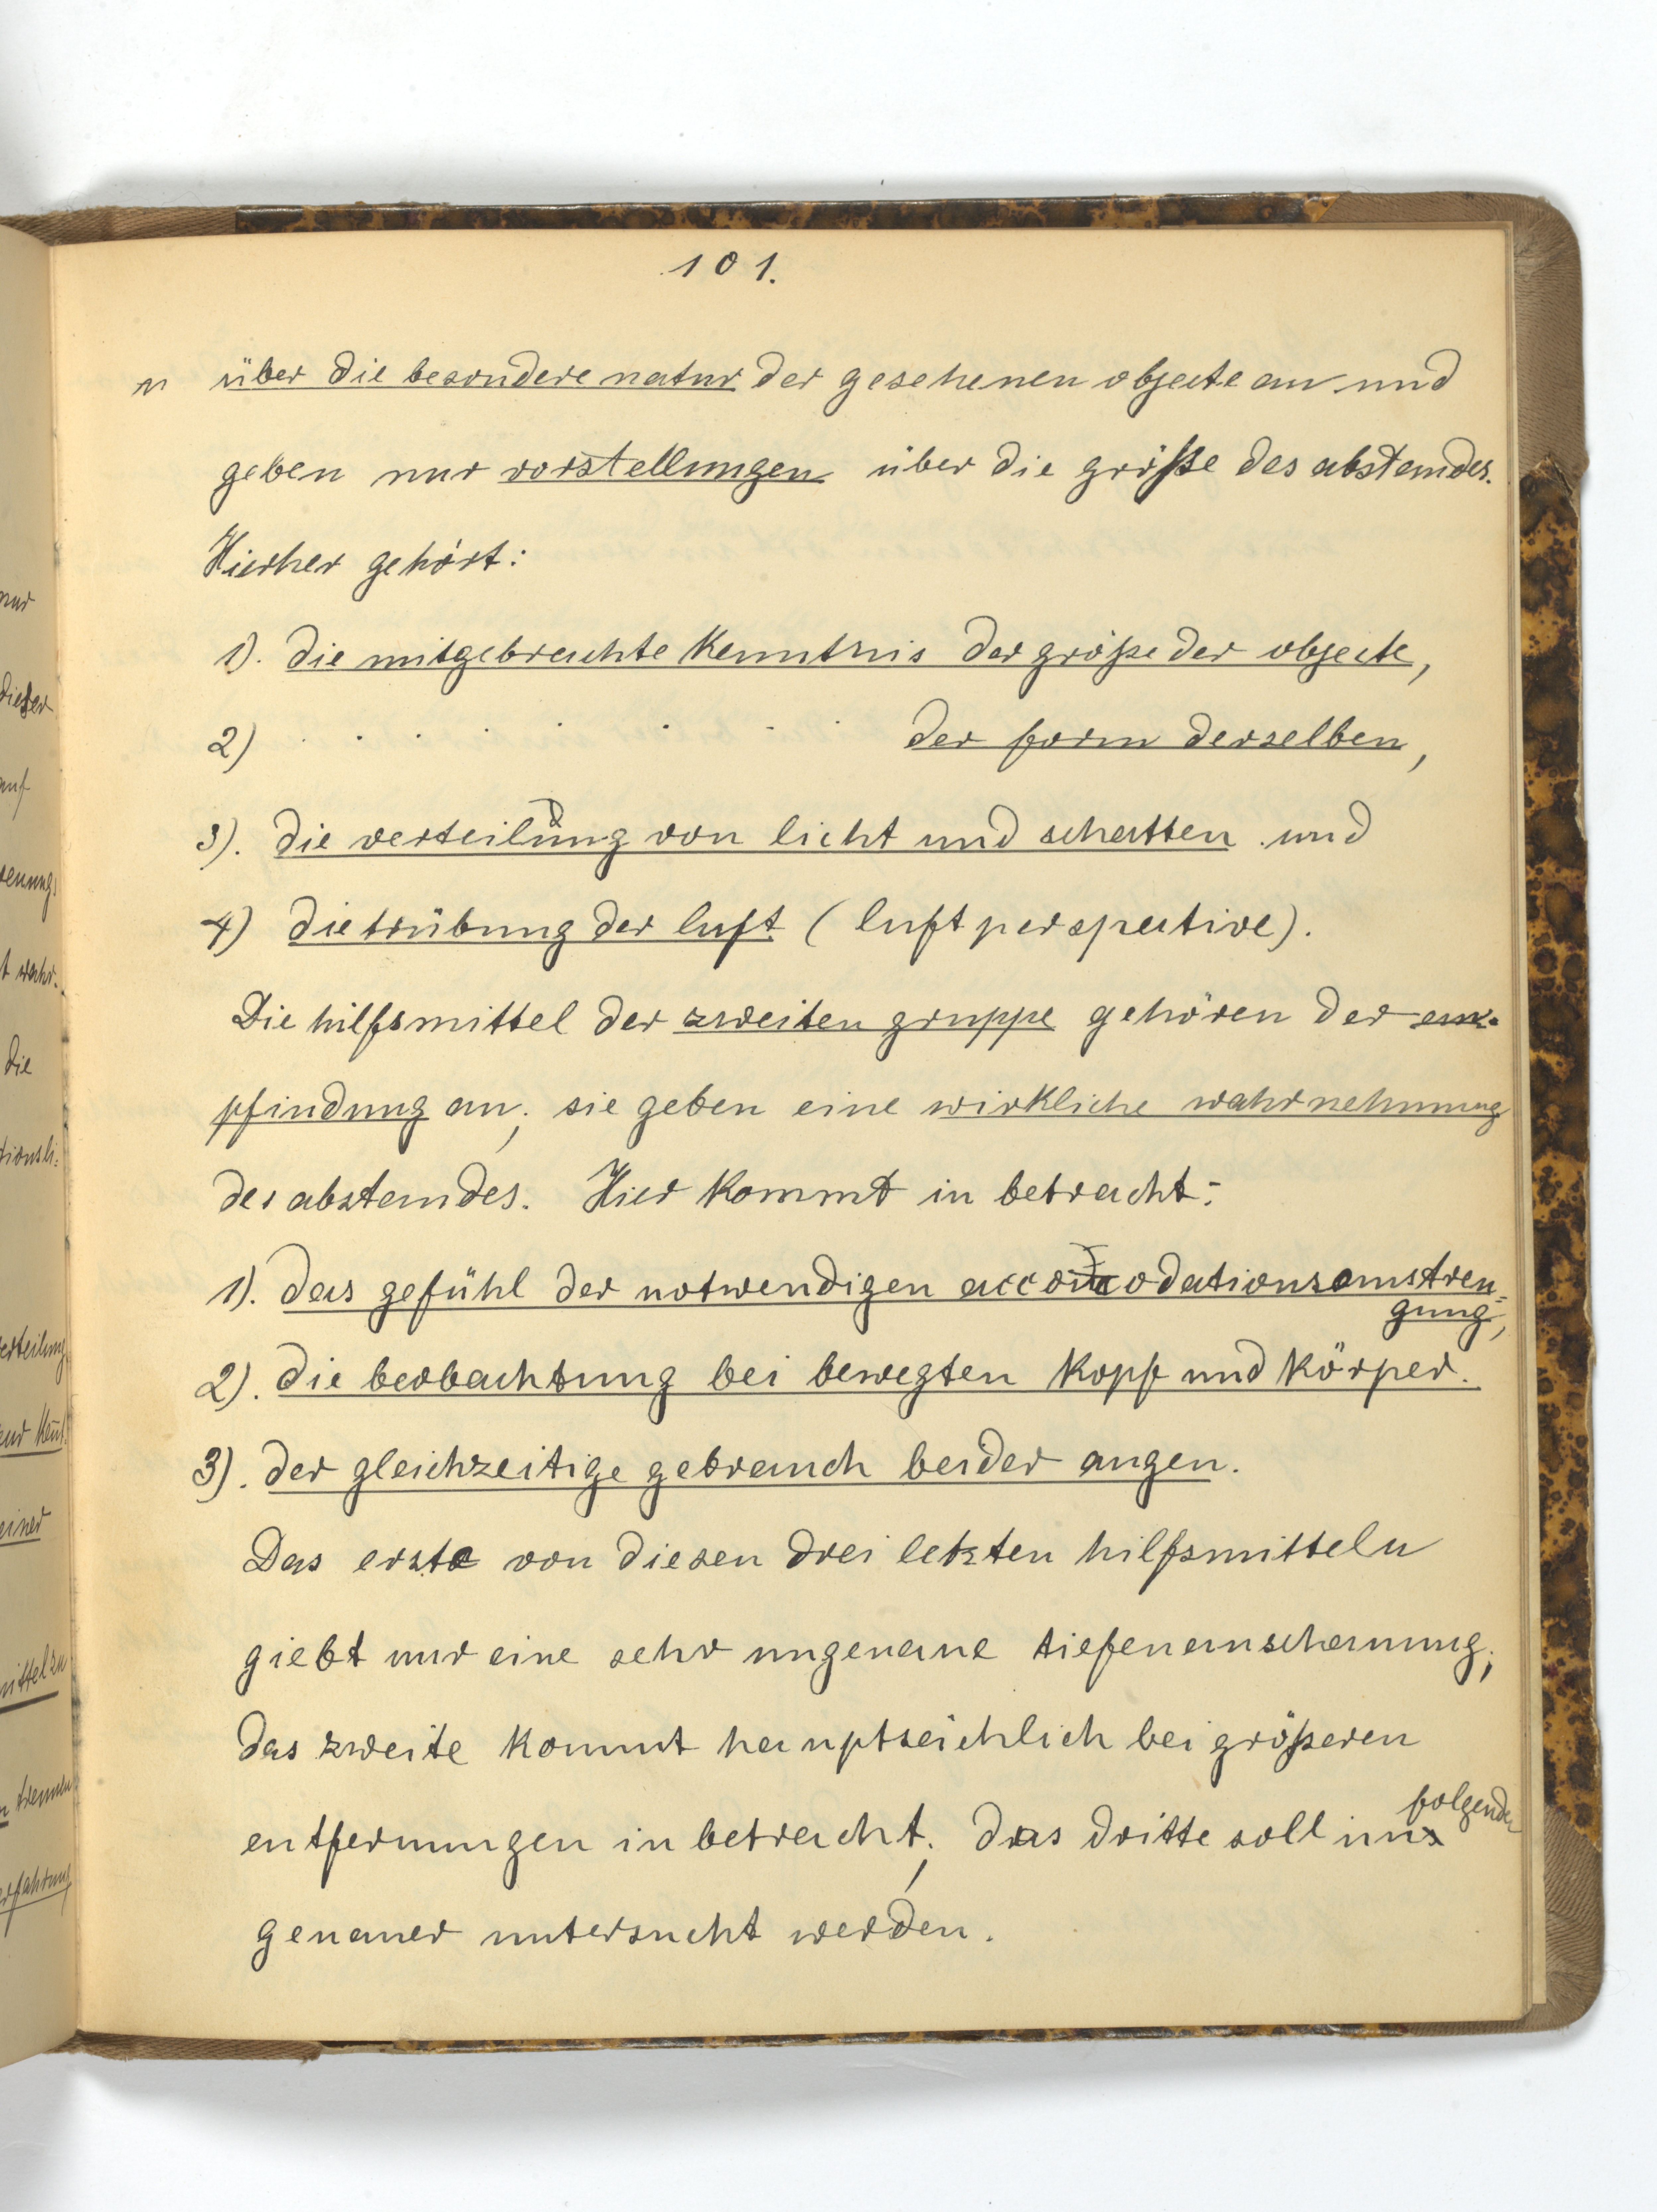 101.
n über die besondere natur der gesehenen objecte an und
geben nur vorstellungen über die größe des abstandes.
Hierher gehört:
1). die mitgebrachte Kenntnis der größe der objecte,
2) . . . . . . . . der form derselben,
3). die verteilung von licht und schatten und
4) die trübung der luft (luftperspective).
Die hilfsmittel der zweiten gruppe gehören der em-
pfindung an; sie geben eine wirkliche wahrnehmung
des abstandes. Hier kommt in betracht:
1). das gefühl der notwendigen accomodationsanstren-
gung,
2). die beobachtung bei bewegten Kopf und Körper.
3). der gleichzeitige gebrauch beider augen.
Das erste von diesen drei letzten hilfsmitteln
giebt nur eine sehr ungenaue tiefenanschauung;
das zweite kommt hauptsächlich bei größeren
folgenden
entfernungen in betracht; das dritte soll im
genauer untersucht werden.
nur
dieser
auf
t wahr-
die
tionsli-
verteilung
einer
mittel zu
trennen
erfahrung